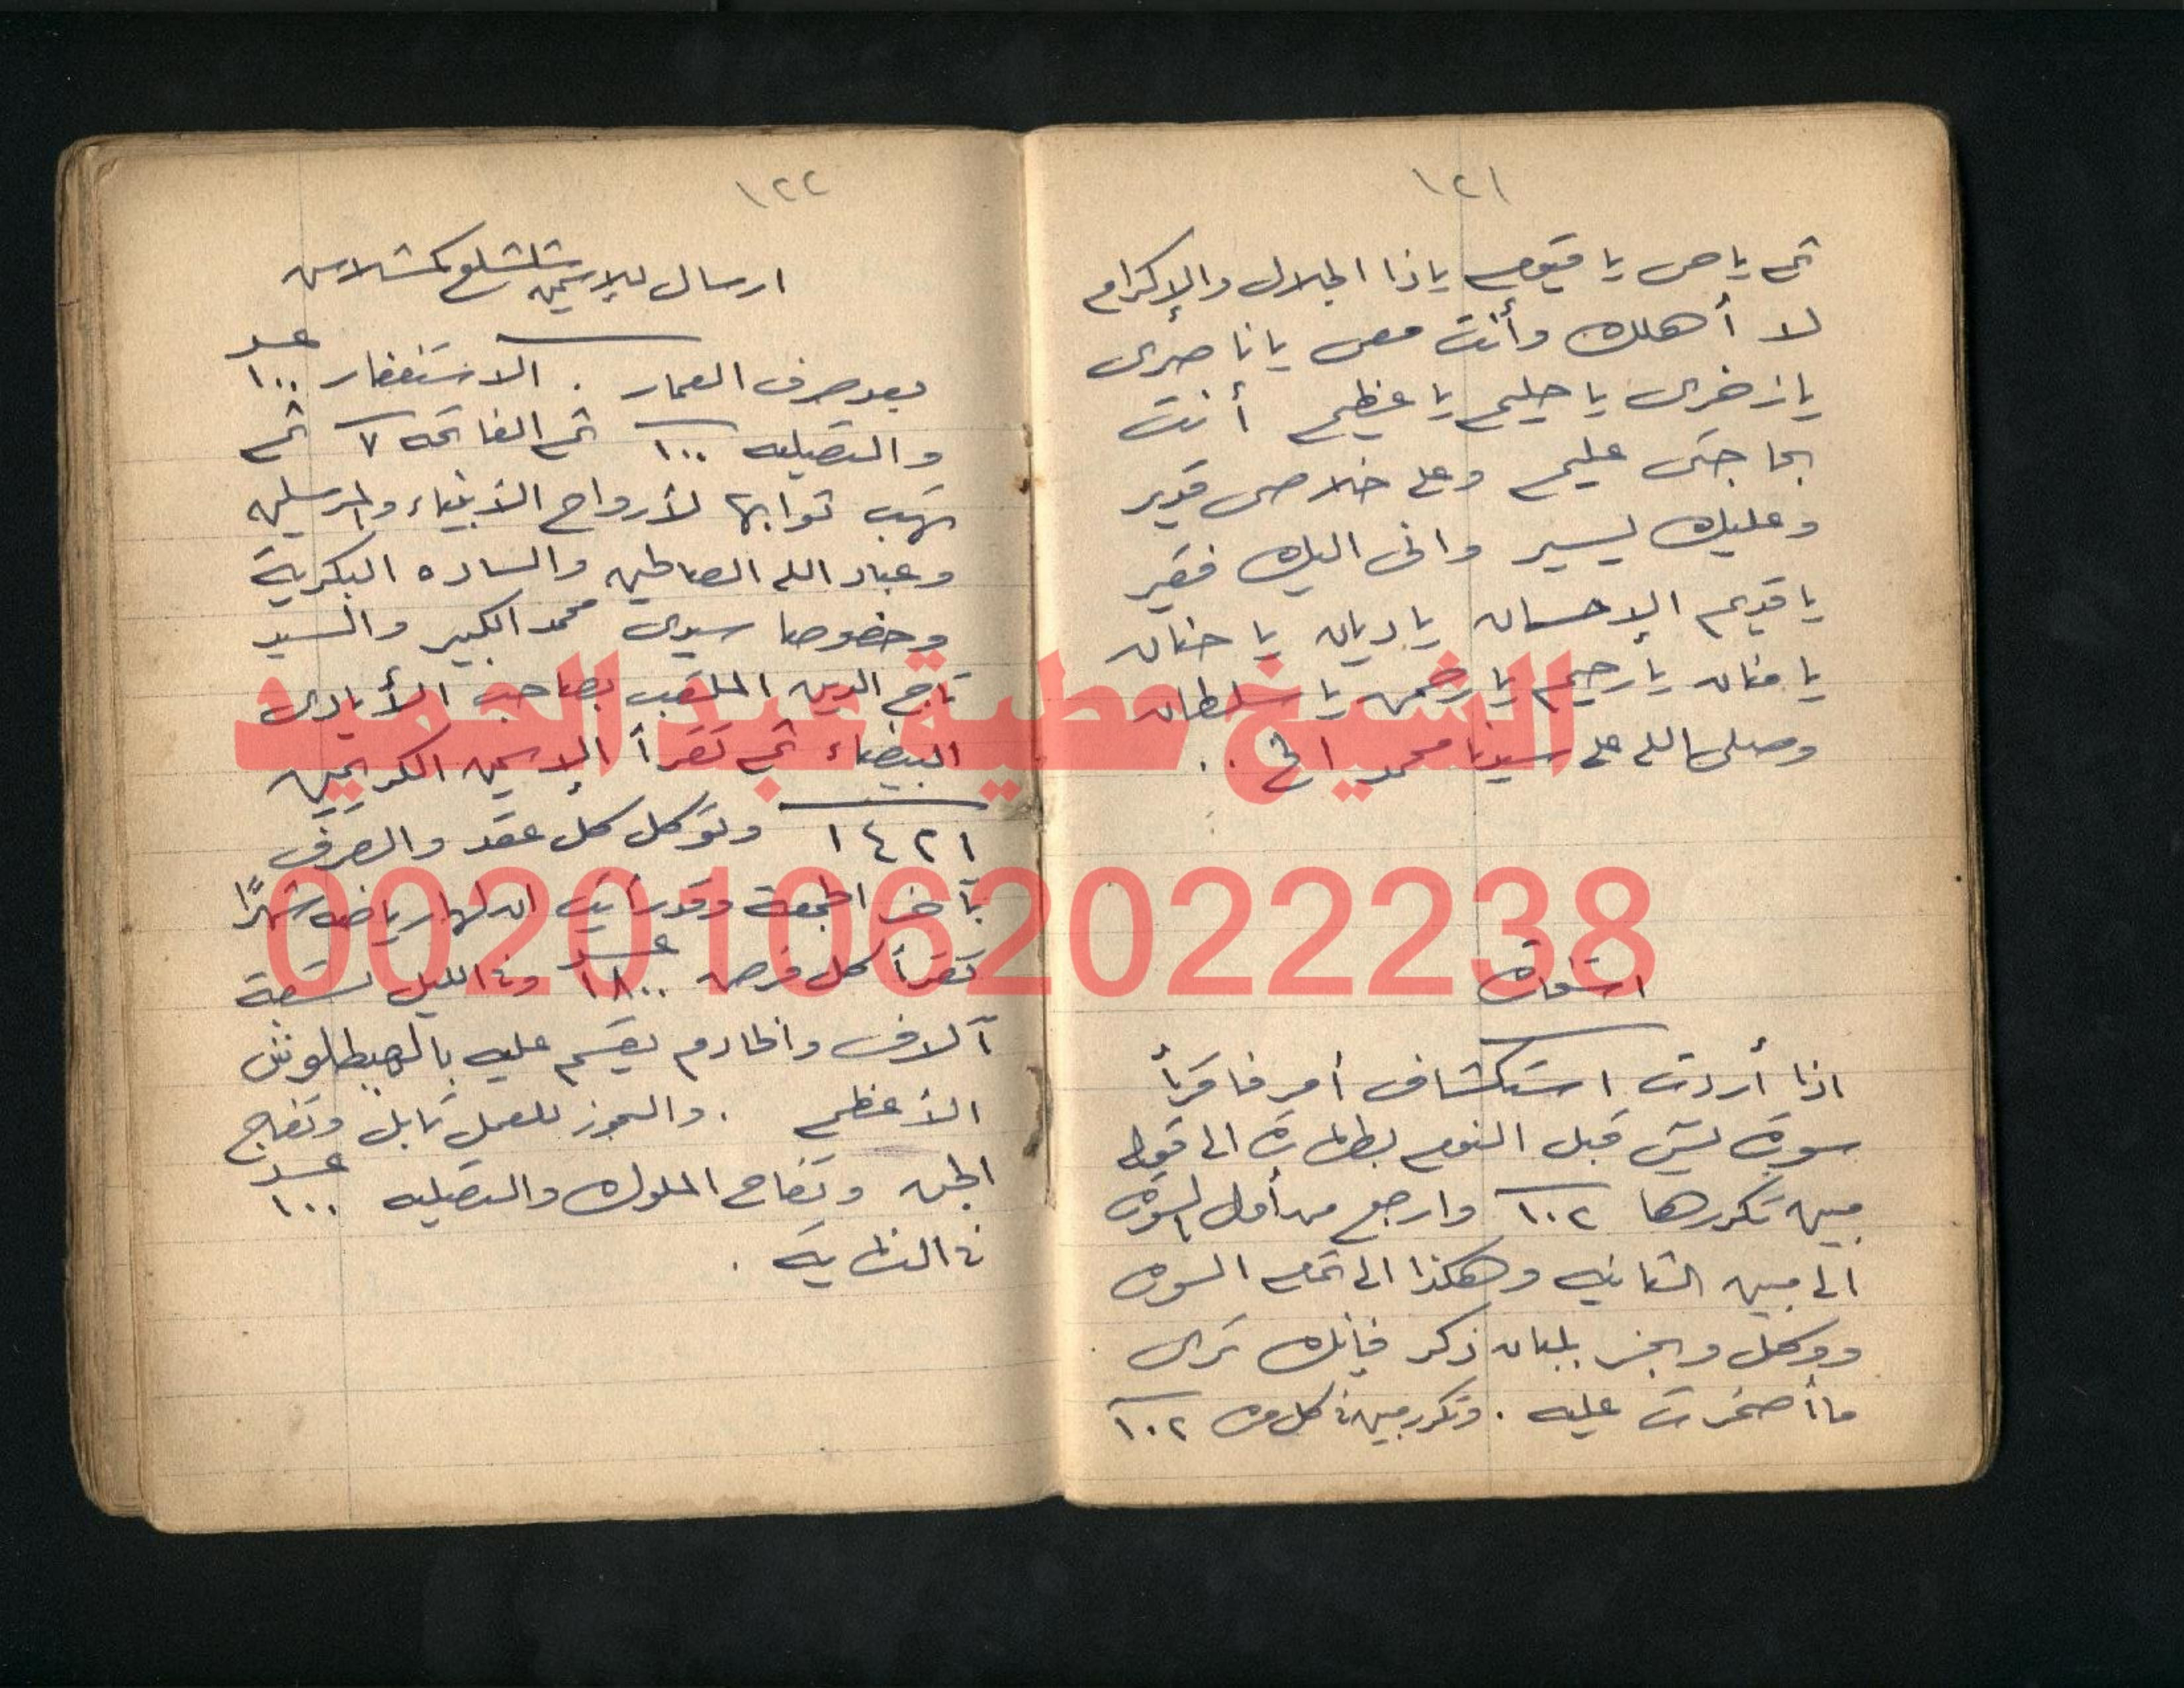 ١٢١
ثم يا حى يا قيوم ياذا الجلال والإكرام
لا أهلك وأنت معى يا ناصرى
يا زخرى يا حليم يا عظيم أنت
بحاجتى عليم وعلى خلاصى قدير
وعليك يسير وانى اليك فقير
يا قديم الإحسان يا ديان يا حنان
يا منان يا رحيم يا رحمن يا سلطان
وصلى الله على سيدنا محمد الخ ..
اذا أردت استكشاف أمر فاقرأ
سورة يس قبل النوم بطهارة الى قوله
مبين تكررها ١٠٢ وارجع من أول السورة
الى مبين الثانيه وهكذا الى تمام السوره
ووكل وبخر بلبان ذكر فإنك ترى
ما أضمرت عليه . وتكرر مبين فى كل مره ١٠٢
١٢٢
ارسال للإسمين
بعد صرف العمار . الاستغفار عدد ١٠٠
والتصليه ١٠٠ ثم الفاتحه ٧ ثم
تهب ثوابها لأرواح الأنبياء والمرسلين
وعباد الله الصالحين والساده البكرية
وخصوصا سيدى محمد الكبير والسيد
تاج الدين الملقب بصاحب الأيادى
البيضاء ثم تقرأ الإسمين الكريمين
١٤٢١ وتوكل كل عقد والصرف
بآخر الجمعة وقد رأيت ان لها رياضه شهرًا
تقرأ كل فرض عدد ١٨٠٠ وفى الليل تسعة
آلاف والخادم يقسم عليه
الأعظم . والبخور للعمل تابل وتفاح
الجن وتفاح الملوك والتصليه عدد ١٠٠
فى النهاية .
الشيخ عطية عبد الحميد
00201062022238